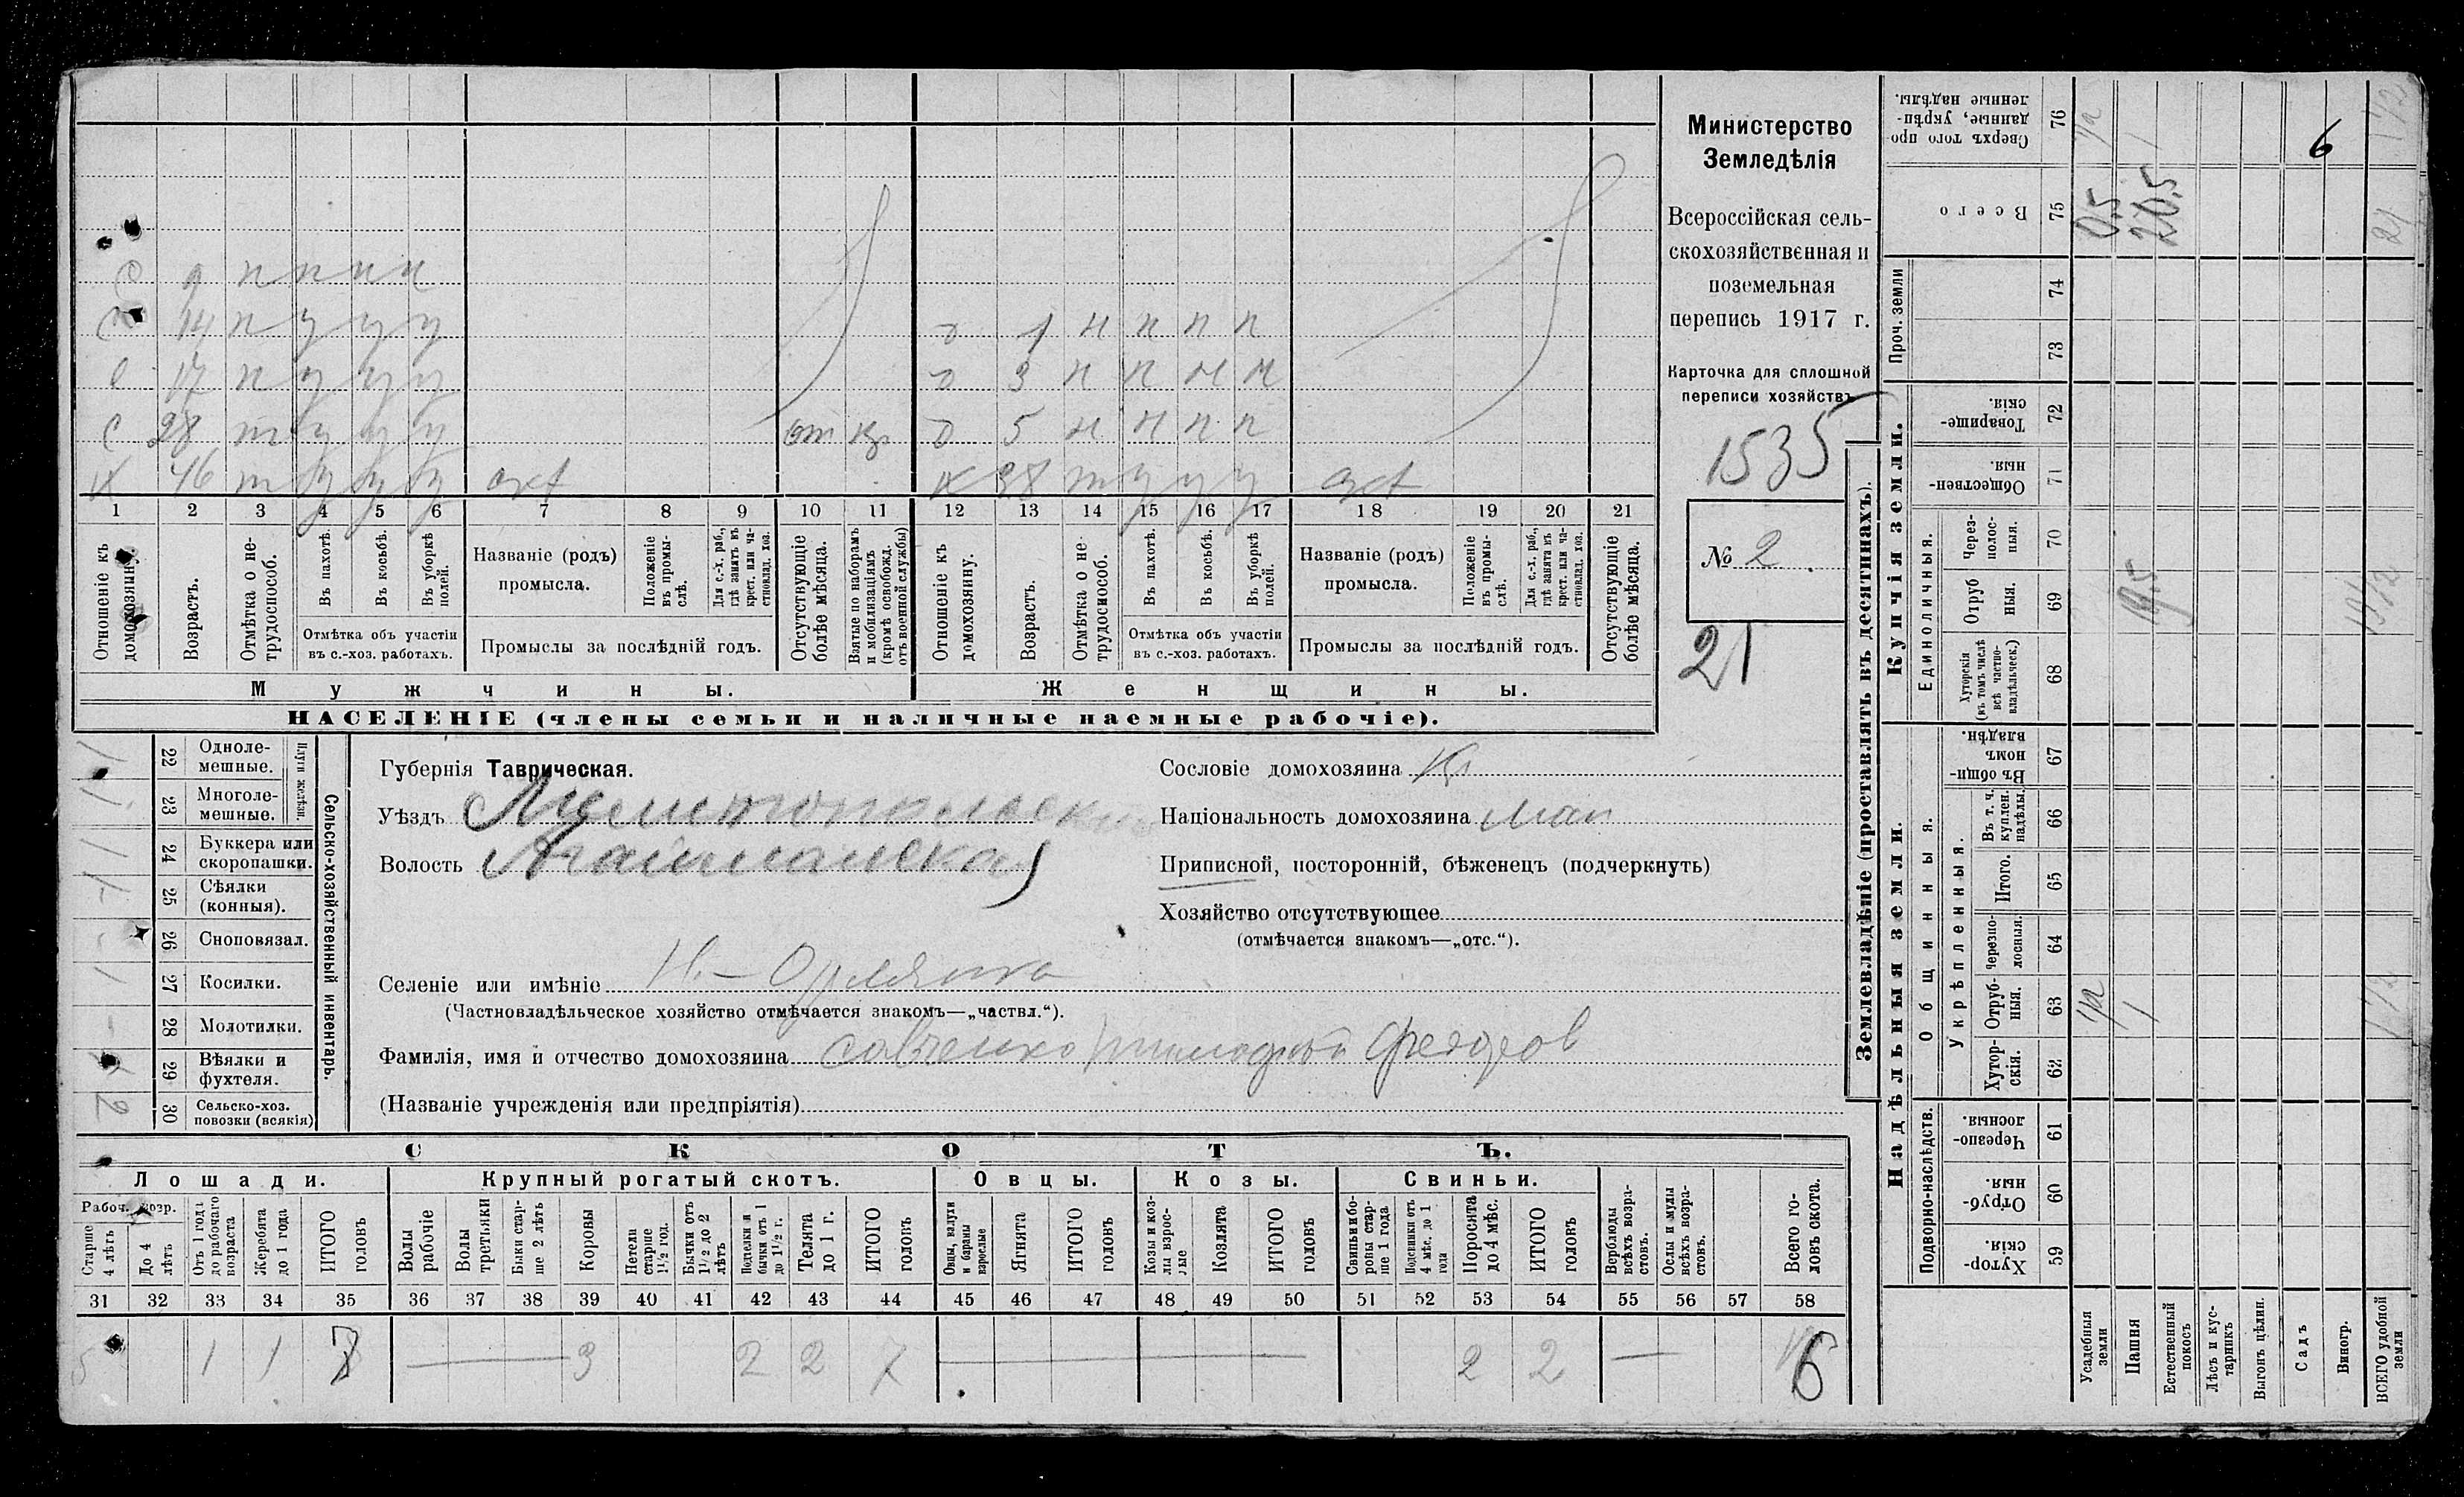 Министерство
Земледѣлія
Всероссійская сель-
скохозяйственная и
поземельная
перепись 1917 г.
Карточка для сплошной
переписи хозяйствъ
1535
№ 2.
21
С 9 н н н н
С 14 п у у у
С 17 п у у у
С 28 т у у у от
Х 46 т у у у
д 1 н н н н
д 3 н н н н
д 5 н н н н
Х 38 т у у у
1 2 3 4 5 6 7 8 9 10 11 12 13 14 15 16 17 18 19 20 21
Отношеніе къ домохозяину.
Возрастъ.
Отмѣтка о не-трудоспособ.
Въ пахотѣ.
Въ косьбѣ.
Въ уборкѣ полей.
Отмѣтка объ участіи
въ с.-хоз. работахъ.
Названіе (родъ)
промысла.
Положеніе въ промы-слѣ.
Для с.-х. раб., гдѣ занятъ въ крест. или ча-стновлад. хоз.
Промыслы за послѣдній годъ.
Отсутствующіе болѣе мѣсяца.
Взятые по наборамъ и мобилизаціямъ (кромѣ освобожд. отъ военной службы)
Отношеніе къ домохозяину.
Возрастъ.
Отмѣтка о не трудоспособ.
Въ пахотѣ.
Въ косьбѣ.
Въ уборкѣ полей.
Отмѣтка объ участіи
въ с.-хоз. работахъ.
Названіе (родъ)
промысла.
Положеніе въ промы-слѣ.
Для с.-х. раб., гдѣ занята въ крест. или ча-стновлад. хоз.
Промыслы за послѣдній годъ.
Отсутствующіе болѣе мѣсяца.
Мужчины. Женщины.
НАСЕЛЕНІЕ (члены семьи и наличные наемные рабочіе).
Сельско-хозяйственный инвентарь.
Плуги желѣзн.
22 Одноле-мешные. 1
23 Многоле-мешные. 1
24 Буккера или скоропашки. 1
25 Сѣялки (конныя).
26 Сноповязал. -
27 Косилки. 1
28 Молотилки. -
29 Вѣялки и фухтеля.
30 Сельско-хоз. повозки (всякія) 2
Губернія Таврическая.
Уѣздъ Мелитопольск
Волость
Селеніе или имѣніе Н.-Орлянка
(Частновладѣльческое хозяйство отмѣчается знакомъ—„частвл.“).
Фамилія, имя и отчество домохозяина Савченко Федоров
(Названіе учрежденія или предпріятія)
Сословіе домохозяина Кр
Національность домохозяина мал
Приписной, посторонній, бѣженецъ (подчеркнуть)
Хозяйство отсутствующее
(отмѣчается знакомъ—„отс.“).
СКОТЪ.
Лошади. Крупный рогатый скотъ. Овцы. Козы. Свиньи.
Рабоч. возр.
Старше 4 лѣтъ
До 4 лѣтъ
Отъ 1 года до рабочаго возраста
Жеребята до 1 года
ИТОГО головъ
Волы рабочіе
Волы третьяки
Быки стар-ше 2 лѣтъ
Коровы
Нетели старше 1½ год.
Бычки отъ 1½ до 2 лѣтъ
Подтелки и бычки отъ 1 до 1½ г.
Телята до 1 г.
ИТОГО головъ
Овцы, валухи и бараны взрослые
Ягнята
ИТОГО головъ
Козы и коз-лы взрос-лые
Козлята
ИТОГО головъ
Свиньи и бо-ровы стар-ше 1 года
Подсвинки отъ 4 мѣс. до 1 года
Поросята до 4 мѣс.
ИТОГО головъ
Верблюды всѣхъ возра-стовъ.
Ослы и мулы всѣхъ возра-стовъ.
Всего го-ловъ скота.
31 32 33 34 35 36 37 38 39 40 41 42 43 44 45 46 47 48 49 50 51 52 53 54 55 56 57 58
5 1 1 7 — 3 2 2 7 — 2 2 — 16
Землевладѣніе (проставлять въ десятинахъ).
Надѣльныя земли. Купчія земли. Проч. земли
Подворно-наслѣдств.
Общинныя.
Укрѣпленныя.
Единоличныя.
Хутор-скія. 59
Отруб-ныя. 60
Черезпо-лосныя. 61
Хутор-скія. 62
Отруб-ныя. 63
Черезпо-лосныя. 64
Итого. 65
Въ т. ч. куплен. надѣлы. 66
Въ общин-номъ владѣн. 67
Хуторскія (въ томъ числѣ всѣ частно-владѣльческ.) 68
Отруб ныя. 69
Через-полос-ныя. 70
Обществен-ныя. 71
Товарище-скія. 72
73 74
Всего 75
Сверхъ того про-данные, укрѣп-ленные надѣлы. 76
Усадебныя земли ½ 0,5 ½
Пашня 1 19,5 20,5 1
Естественный покосъ
Лѣсъ и кус-тарникъ
Выгонъ цѣлин.
Садъ
Виногр.
ВСЕГО удобной земли 1½ 19½ 21 1½
6